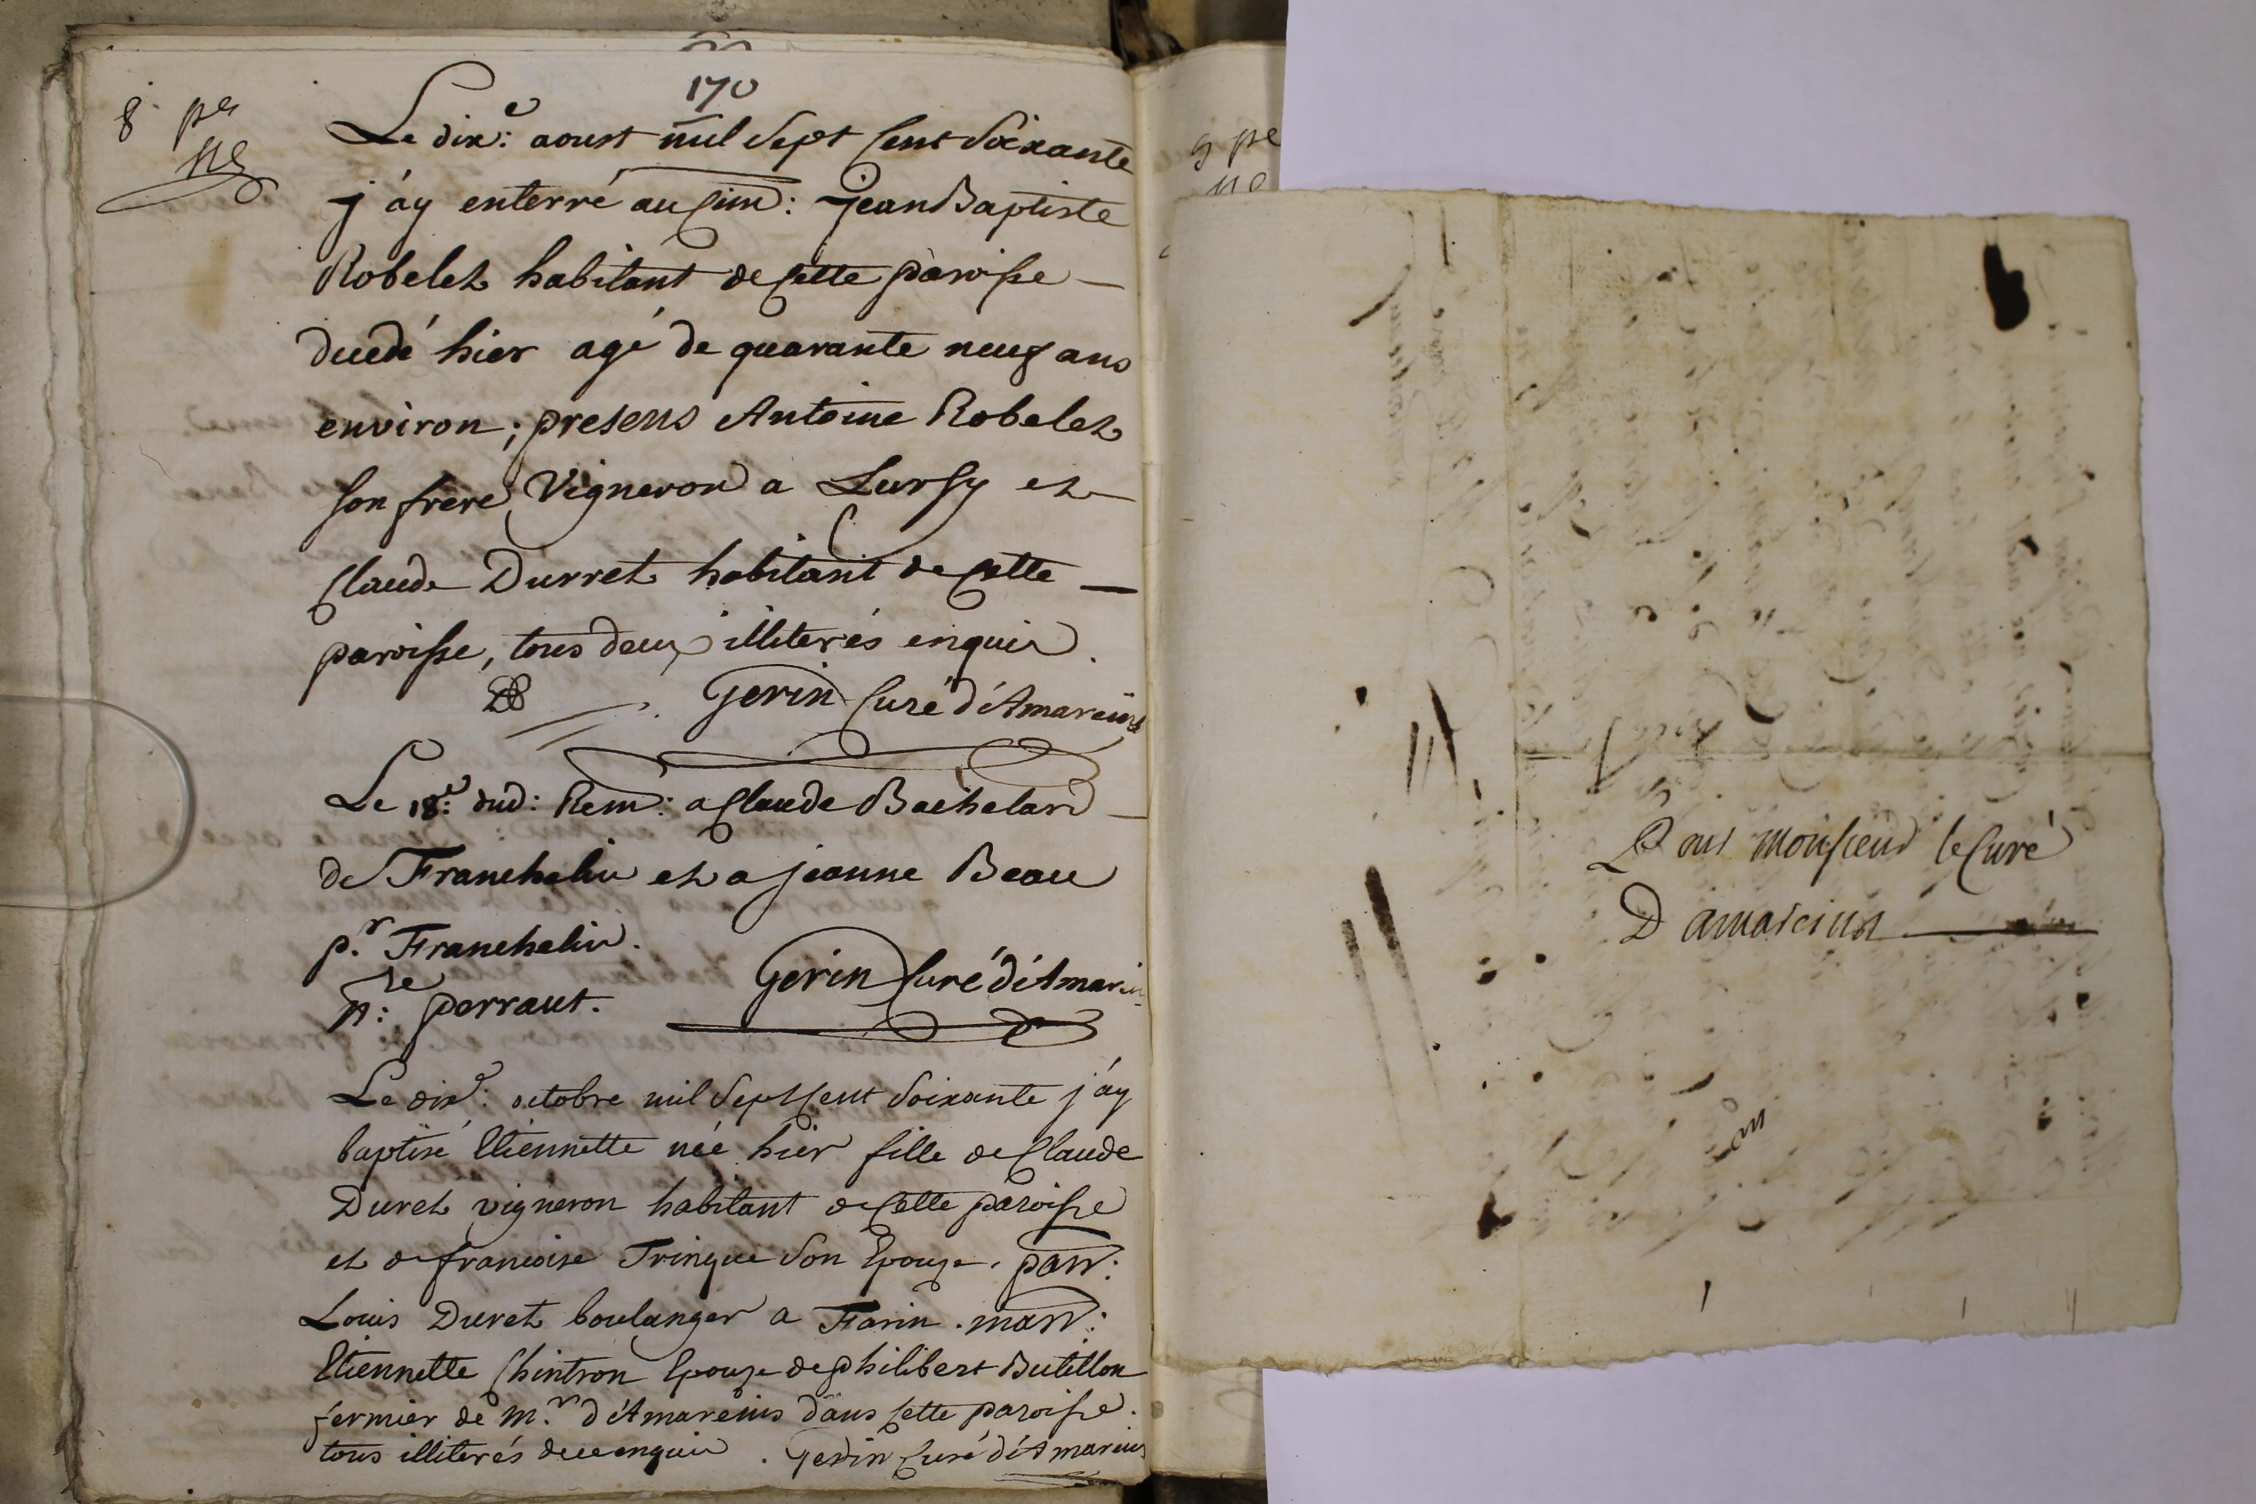 170
8 pe
ne
Le dix.e aoust mil sept cent soixante
j'áy enterré au cim: jean Baptiste
Robelet habitant de cette paroisse —
decedé hier agé de quarante neuf ans
environ; presens Antoine Robelet
son frere, vigneron a Lursy et —
Claude Durret habitant de cette —
paroisse, tous deux illiterés enquis.
Gerin Curé d'Amareins
Le 18.e dud: Rem: a Claude Bachelard —
de Franchelin et a jeanne Beau
p.r Franchelin.
N:re perraut.
Gerin Curé d'Amarein
Le dix.e: octobre mil sept cent soixante j'áy
baptisé Etiennette née hier fille de Claude
Duret vigneron habitant de cette paroisse
et de francoise Trinque son Epouse. parr:
Louis Duret boulanger a Farin. marr:
Etiennette Chintron Epouse de philibert Butillon
fermier de M.r d'Amareins dans cette paroisse.
tous illiterés de ce enquis. Gerin Curé d'Amareins
9 pe
ne
Pour monsieur le Curé
Damareins